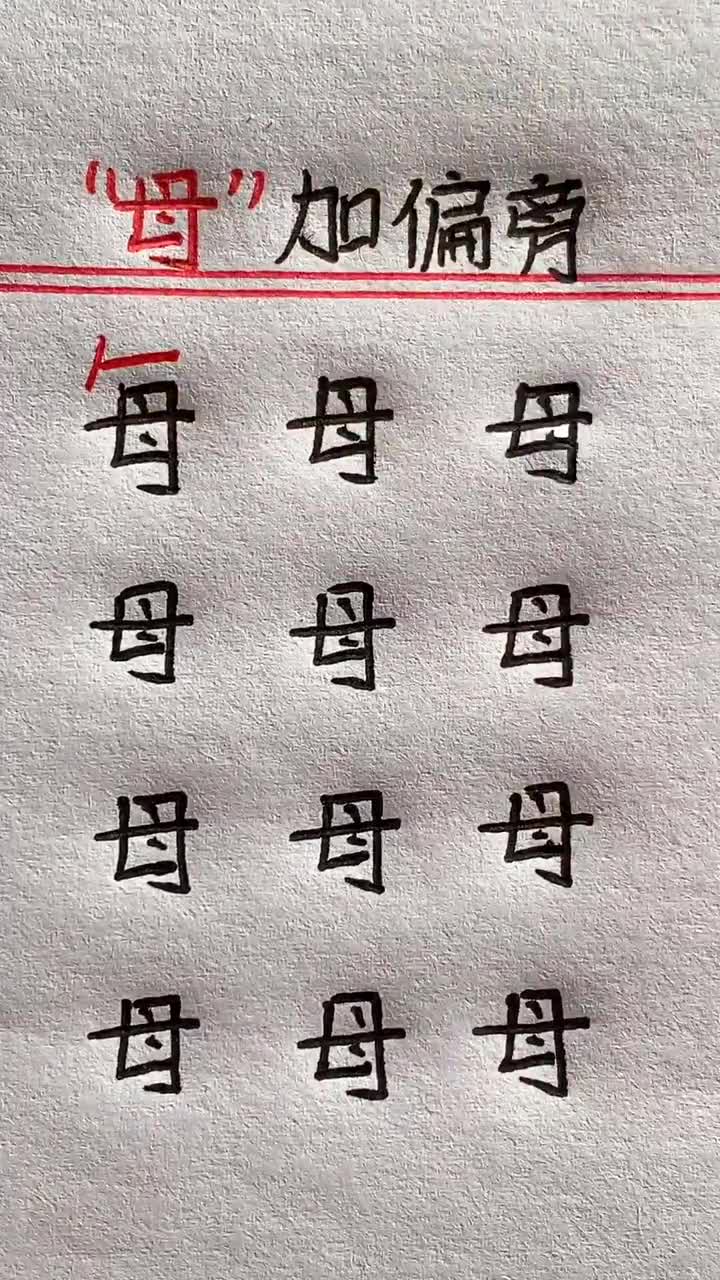 “母”加偏旁
每 母 母
母 母 母
母 母 母
母 母 母